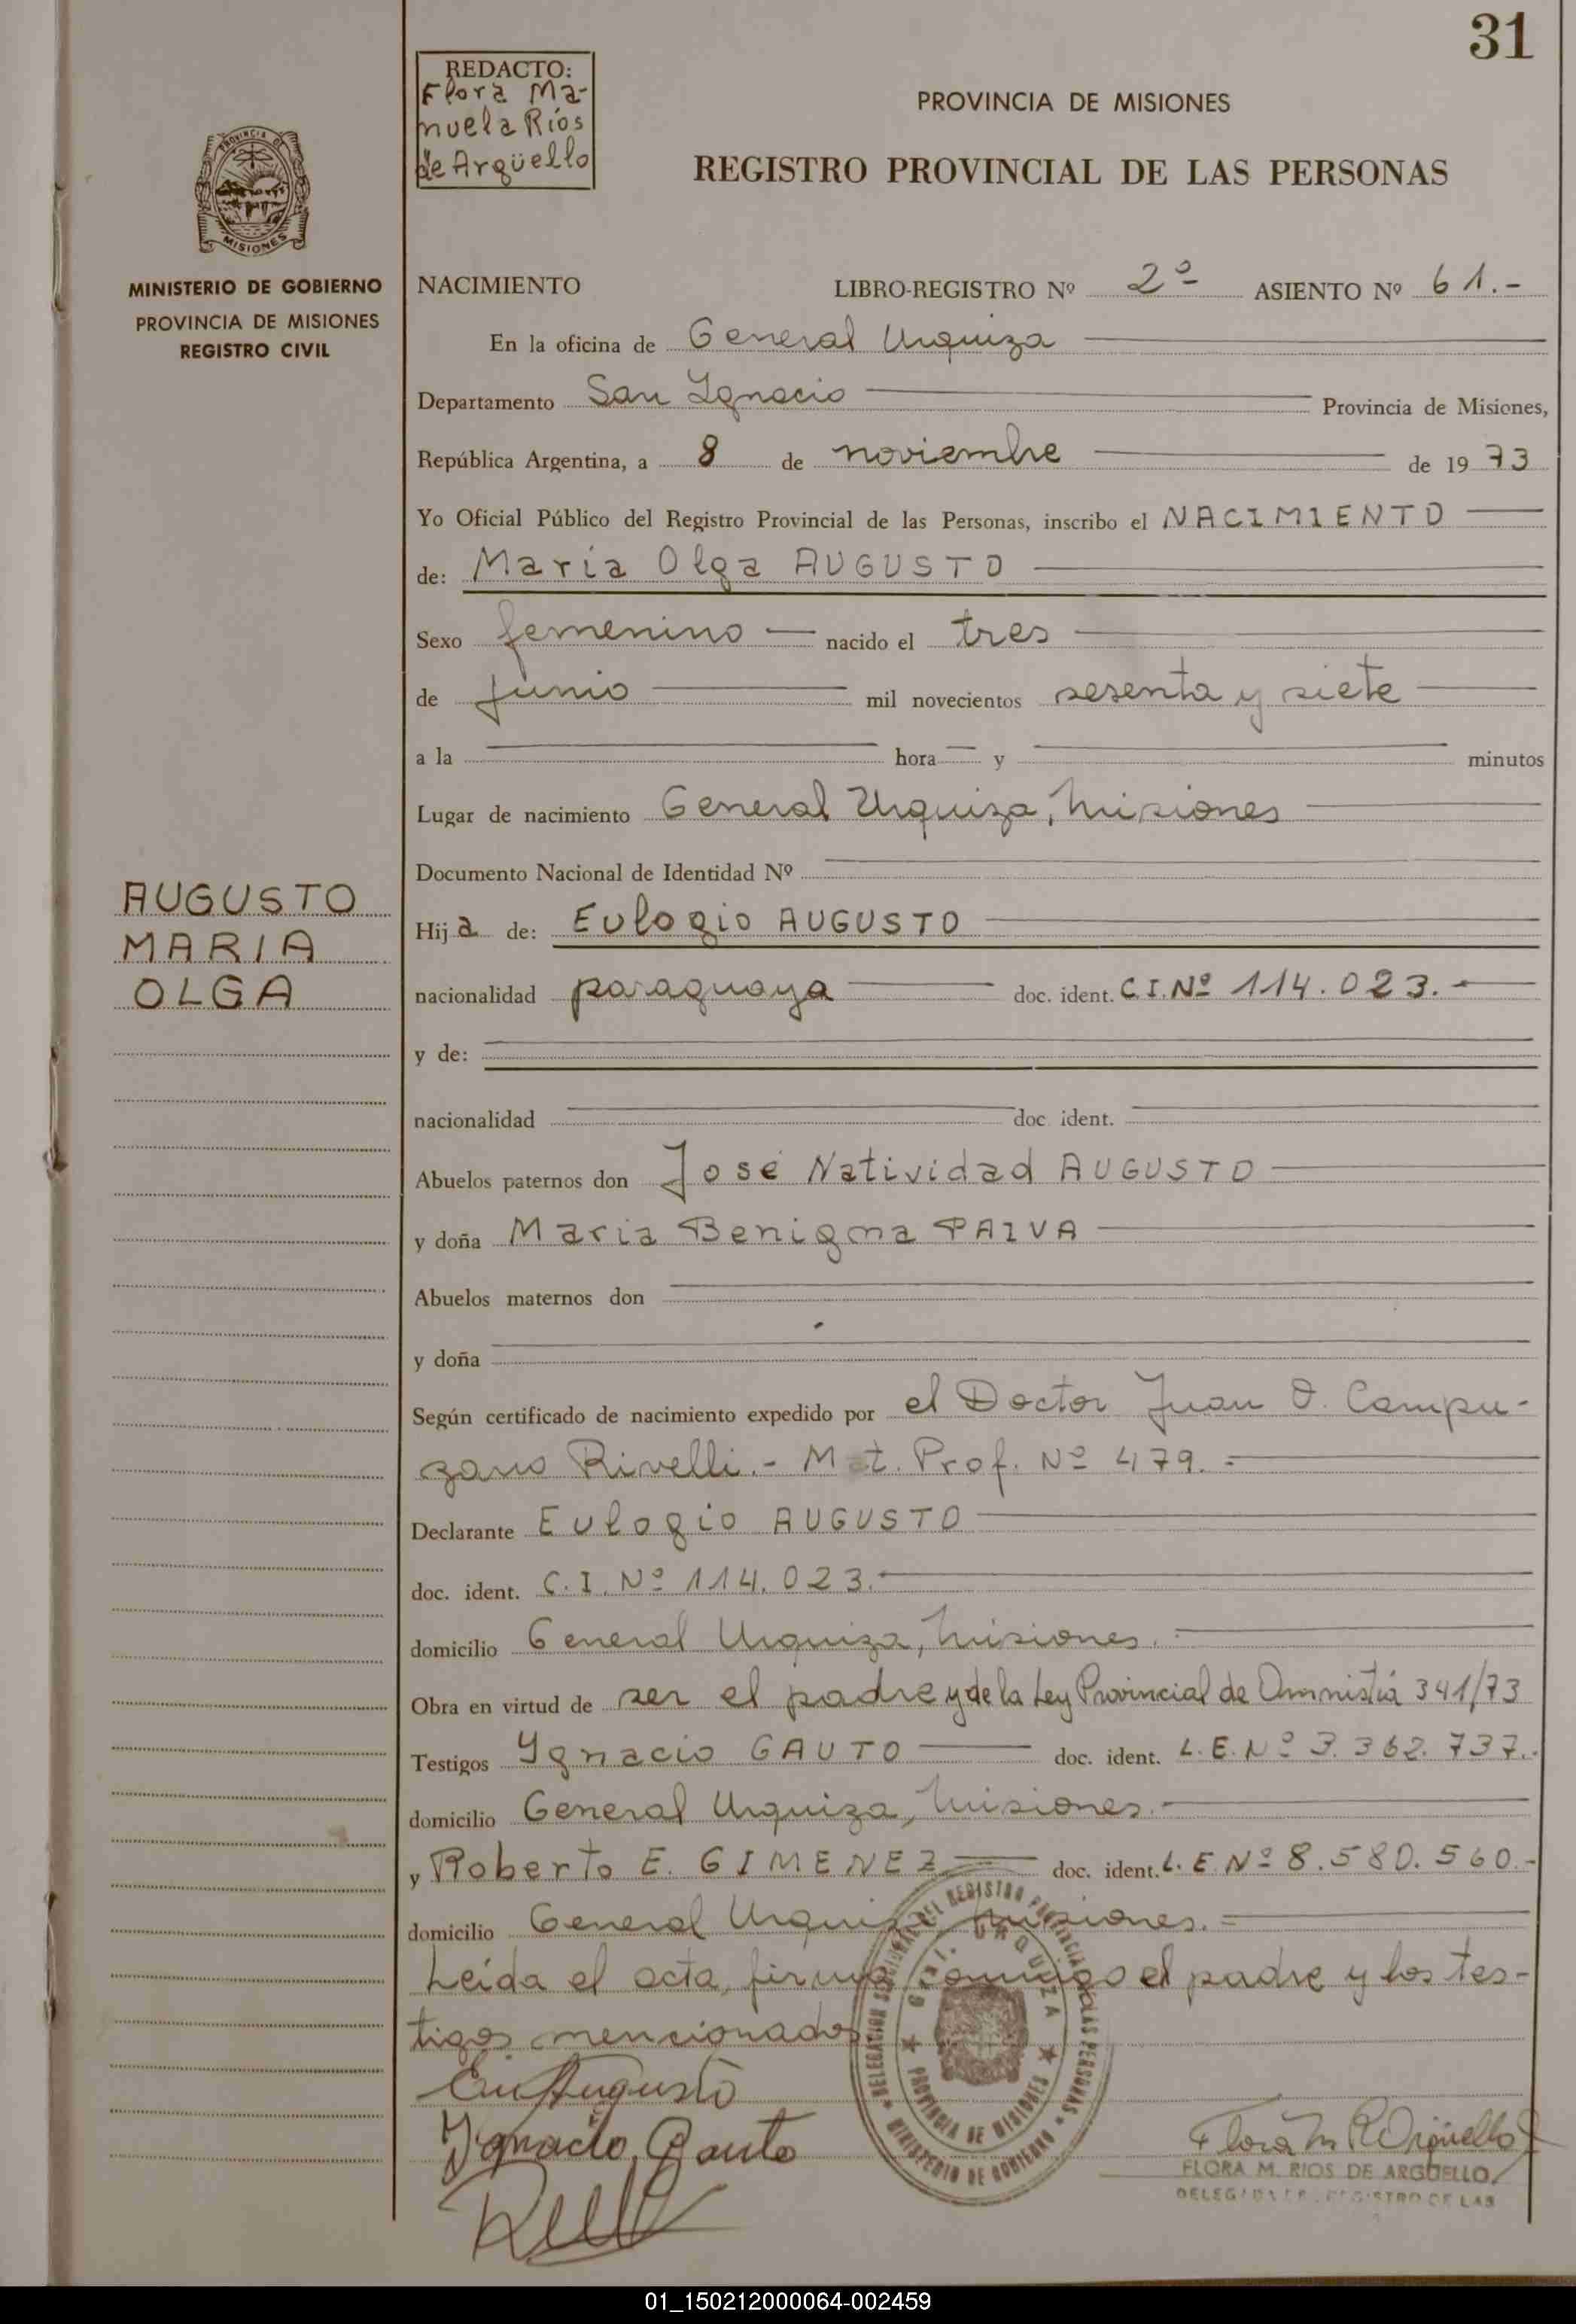 31
REDACTO:
Flora Ma-
nuela Ríos
de Argüello
PROVINCIA DE MISIONES
REGISTRO PROVINCIAL DE LAS PERSONAS
PROVINCIA DE
MISIONES
MINISTERIO DE GOBIERNO
PROVINCIA DE MISIONES
REGISTRO CIVIL
NACIMIENTO LIBRO-REGISTRO Nº 2º ASIENTO Nº 61.-
En la oficina de General Urquiza
Departamento San Ignacio Provincia de Misiones,
República Argentina, a 8 de noviembre de 1973
Yo Oficial Público del Registro Provincial de las Personas, inscribo el NACIMIENTO
de: María Olga AUGUSTO
Sexo femenino nacido el tres
de junio mil novecientos sesenta y siete
a la hora y minutos
Lugar de nacimiento General Urquiza, Misiones
Documento Nacional de Identidad Nº
AUGUSTO
MARIA
OLGA
Hija de: Eulogio AUGUSTO
nacionalidad paraguaya doc. ident. C.I. Nº 114.023.-
y de:
nacionalidad doc. ident.
Abuelos paternos don José Natividad AUGUSTO
y doña Maria Benigna PAIVA
Abuelos maternos don
y doña
Según certificado de nacimiento expedido por el Doctor Juan O. Campu-
zano Rivelli.- Mat. Prof. Nº 479.-
Declarante Eulogio AUGUSTO
doc. ident. C.I. Nº 114.023.-
domicilio General Urquiza, Misiones.-
Obra en virtud de ser el padre y de la Ley Provincial de Amnistía 341/73
Testigos Ygnacio GAUTO doc. ident. L.E. Nº 3.362.737.-
domicilio General Urquiza, Misiones.-
y Roberto E. GIMENEZ doc. ident. L.E. Nº 8.580.560.-
domicilio General Urquiza Misiones.-
Leída el acta, firman conmigo el padre y los tes-
tigos mencionados
DELEGACION SECCIONAL DEL REGISTRO PROVINCIAL DE LAS PERSONAS
MINISTERIO DE GOBIERNO
GRAL. URQUIZA
PROVINCIA DE MISIONES
Eu Augusto
Ygnacio Gauto
Flora M R D Argüello
FLORA M. RIOS DE ARGÜELLO
REGISTRO DE LAS
01_150212000064-002459